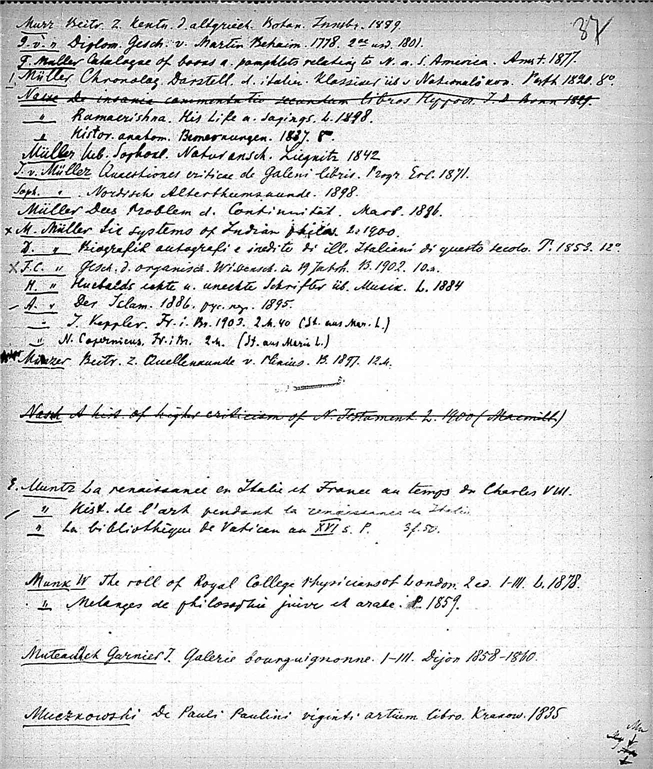 37
Murr Beitr. z. Kentn. d. altgriech. Botan. Innsbr. 1889.
" v. " Diplom. Gesch. v. Martin Behaim. 1778. 2te Ausd. 1801.
F. Müller Catalogue of books a. pamphlets relating to N. a. S. America. Amst. 1877.
Müller Chronolog. Darstell. d. italien. Klassiker üb. Nationalökon. Pesth 1820. 8°.
Nasse De insania commentatio secundum libros Hippocr. J. D. Bonn 1829.
" Ramacrishna. His Life a. Sayings. L. 1898.
" Histor. anatom. Bemerkungen. 1837. 8
Müller Ueb. Sophocl. Naturansch. Liegnitz 1842
J. v. Müller Quaestiones criticae de Galeni libris. Progr. Erl. 1871.
Soph. " Nordische Alterthumskunde. 1898.
Müller Das Problem d. Continuität. Marb. 1886.
x M. Müller Six systems of Indian philos. L. 1900.
D. " Biografie autografi e inedite di ill. Italiani di questo secolo. T. 1853. 12°.
x F.C. " Gesch. d. organisch. Wissensch. im 19 Jahrh. B. 1902. 10 m.
H. " Hucbalds echte u. unechte Schriften üb. Musik. L. 1884
A. " Der Islam. 1886. 1895.
" J. Keppler. Fr. i. Br. 1903. 2 M. 40 (St. aus Mar. L.)
" N. Copernicus. Fr. i Br. 2 M. (St. aus Maria L.)
Münzer Beitr. z. Quellenkunde v. Plinius. B. 1897. 12 M.
Nash A hist. of higher criticism of N. Testament. L. 1900 (Macmill.)
E. Muntz La renaissance en Italie et France au temps du Charles VIII.
" Hist. de l'art pendant la renaissance en Italie
" La bibliothèque de Vatican au XVI s. P. 3f.50.
Munk W The roll of Royal College Physicians of London. 2 ed. I-III. L. 1878.
" Melanges de philosophie juive et arabe. P. 1859.
Muteau et Garnier J. Galerie bourguignonne. I-III. Dijon 1858-1860.
Muczkowski De Pauli Paulini viginti artium libro. Krakow. 1835
Mu